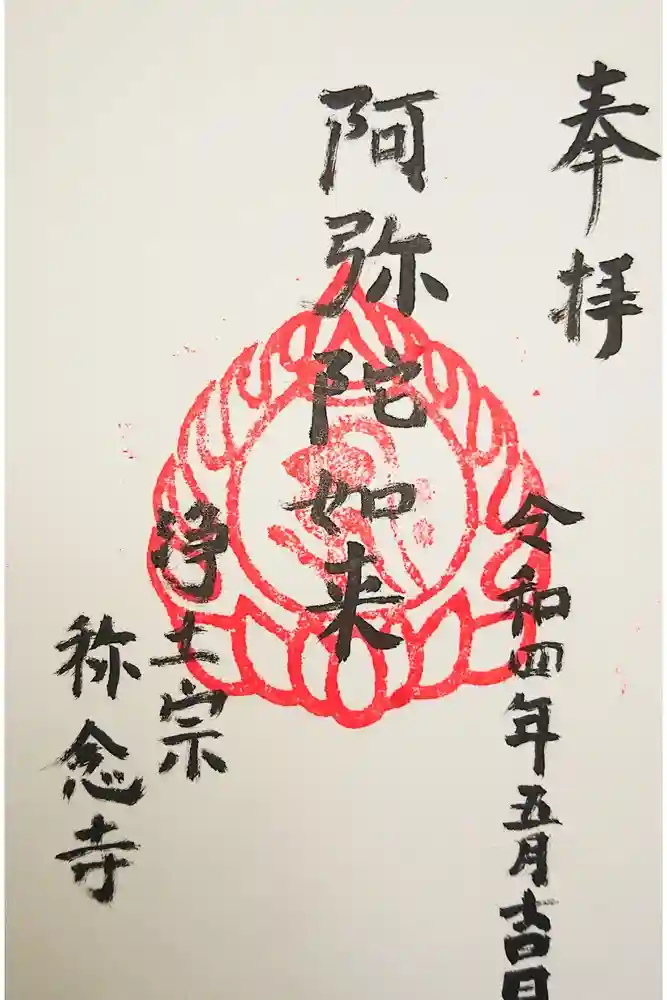 奉拝
令和四年五月吉日
阿弥陀如来
浄土宗
称念寺